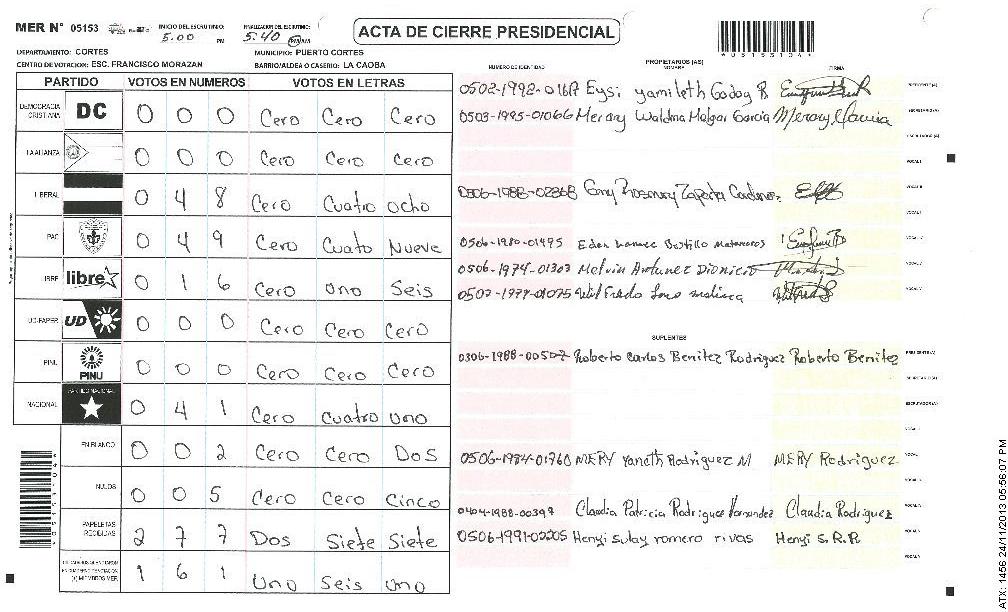 MER Nº 05153 INICIO DEL ESCRUTINIO: 5:00 PM FINALIZACION DEL ESCRUTINIO: 5:40 PM/AM
ACTA DE CIERRE PRESIDENCIAL
DEPARTAMENTO: CORTES MUNICIPIO: PUERTO CORTES
CENTRO DE VOTACION: ESC. FRANCISCO MORAZAN BARRIO/ALDEA O CASERIO: LA CAOBA
PARTIDO VOTOS EN NUMEROS VOTOS EN LETRAS
DEMOCRACIA CRISTIANA DC 0 0 0 Cero Cero Cero
LA ALIANZA 0 0 0 Cero Cero Cero
LIBERAL 0 4 8 Cero Cuatro ocho
PAC 0 4 9 Cero Cuato Nueve
LIBRE libre 0 1 6 Cero uno Seis
UD-FAPER UD 0 0 0 Cero Cero Cero
PINU PINU 0 0 0 Cero Cero Cero
NACIONAL PARTIDO NACIONAL 0 4 1 Cero Cuatro uno
EN BLANCO 0 0 2 Cero Cero Dos
NULOS 0 0 5 Cero Cero Cinco
PAPELETAS RECIBIDAS 2 7 7 Dos Siete Siete
1 6 1 Uno Seis uno
NUMERO DE IDENTIDAD PROPIETARIOS (AS) NOMBRE FIRMA
Eysi yamileth Godoy R PRESIDENTE (A)
0503-1995-01066 Merary Waldina Melgar Garcia SECRETARIO (A)
ESCRUTADOR (A)
VOCAL I
Zapata VOCAL II
0506-1980-01495 Bustillo VOCAL III
0506-1974-01303 Melvin Antunez Dionicio VOCAL IV
VOCAL V
SUPLENTES
0306-1988-00507 Roberto Carlos Benitez Rodriguez Roberto Benitez PRESIDENTE (A)
SECRETARIO (A)
ESCRUTADOR (A)
VOCAL I
0506-1984-01760 MERY Yaneth Rodriguez M MERY Rodriguez
0404-1988-00397 Claudia Patricia Rodriguez Hernandez Claudia Rodriguez
0506-1991-02205 Henyi Sulay romero rivas Henyi S.R.R
ATX: 1456 24/11/2013 05:56:07 PM